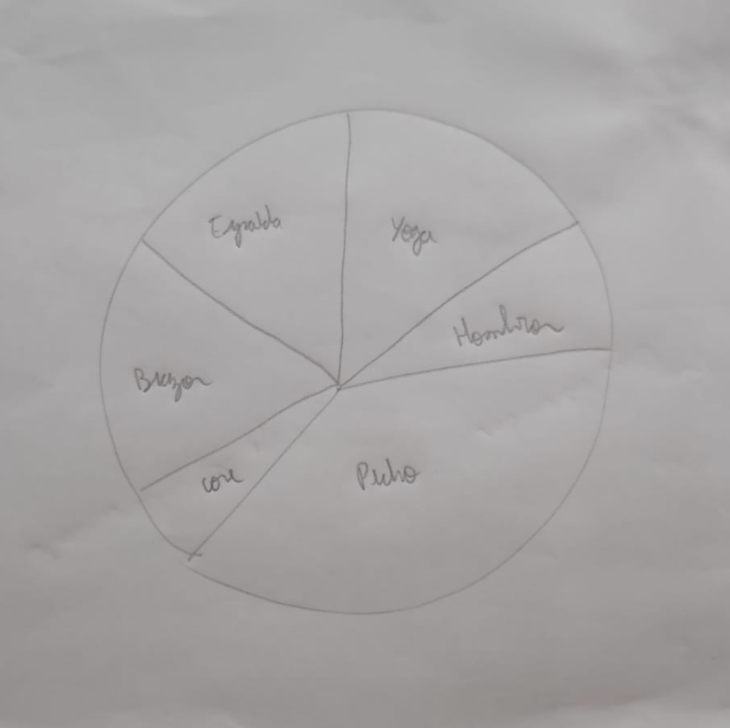 Espalda
Yoga
Hombros
Brazos
core
Pecho